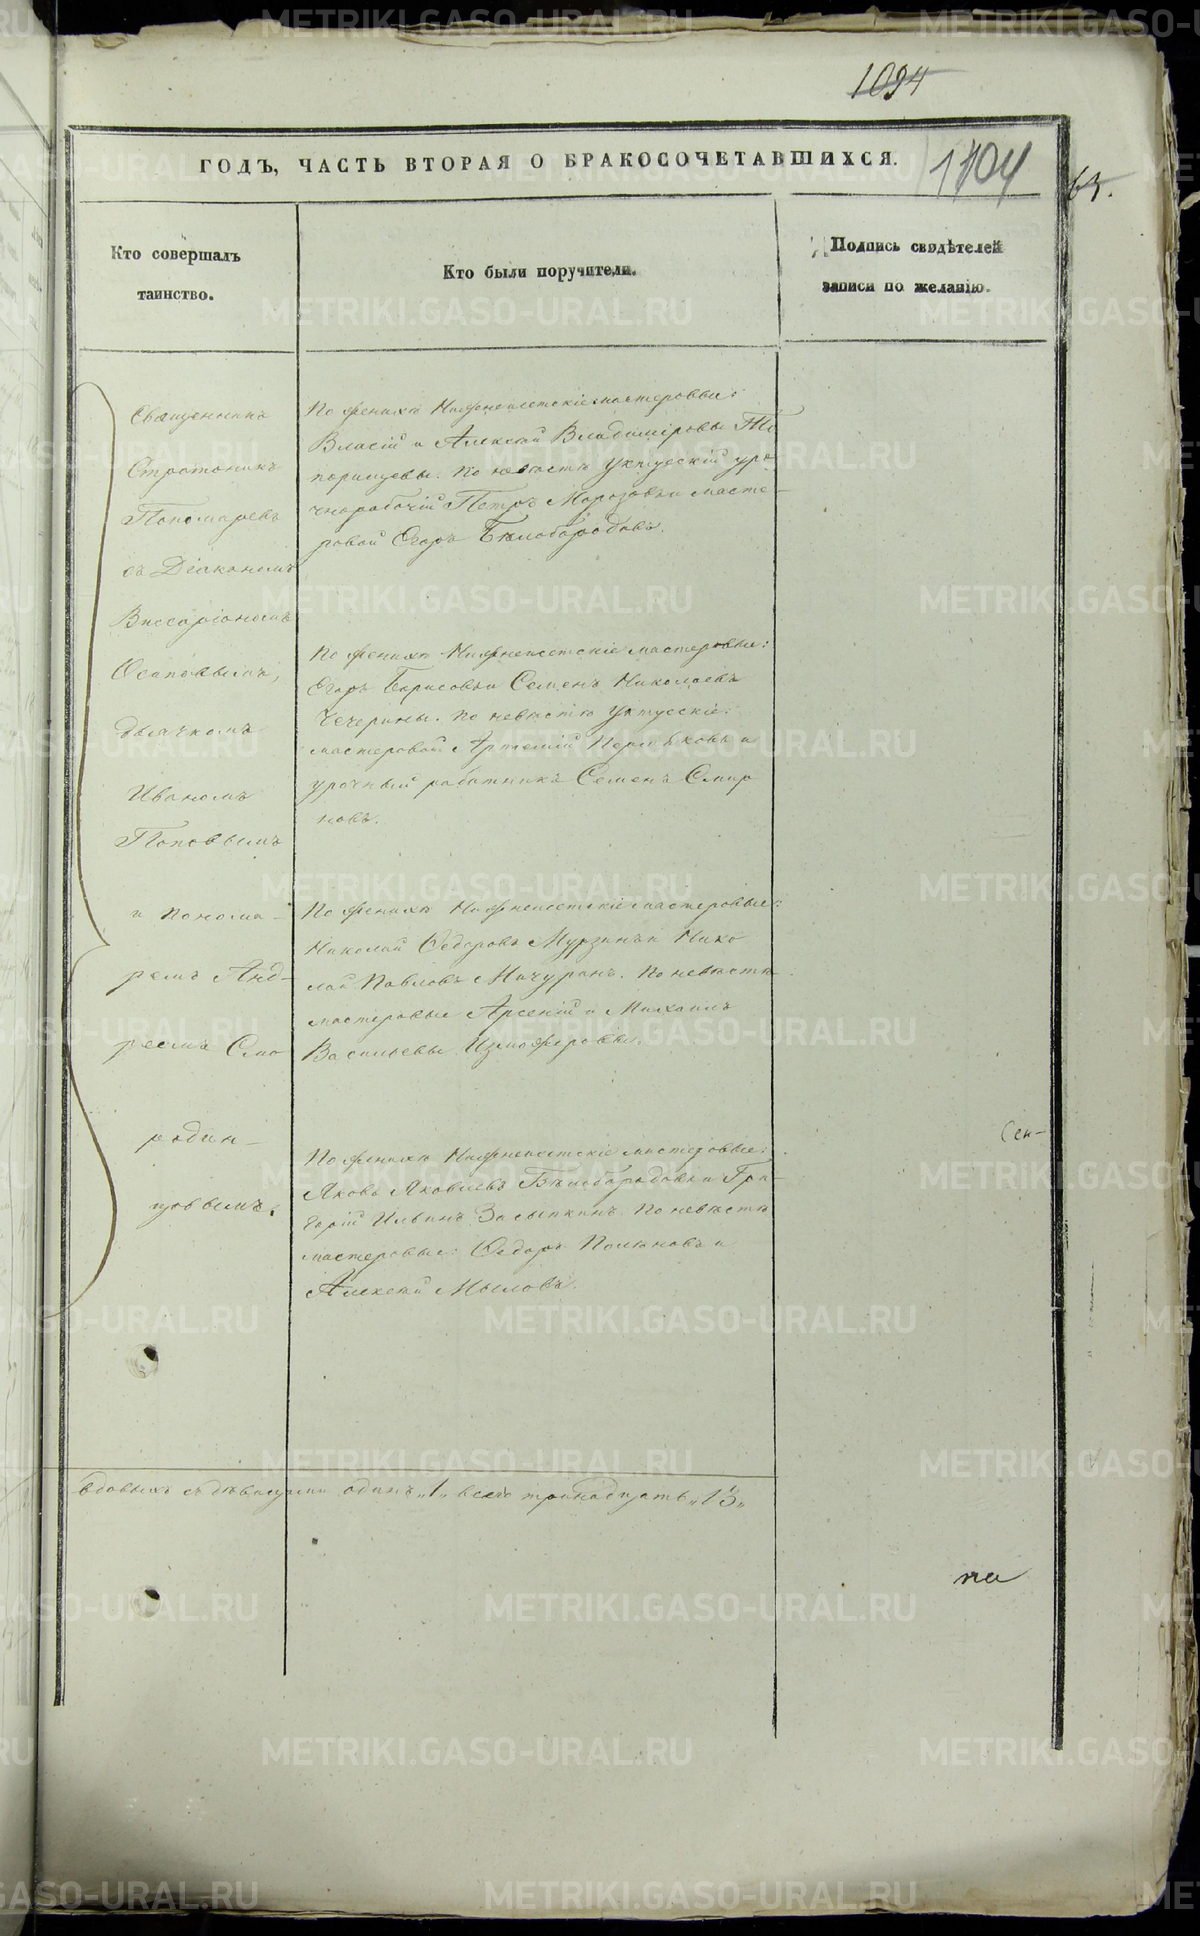 1094
ГОДЪ, ЧАСТЬ ВТОРАЯ О БРАКОСОЧЕТАВШИХСЯ.
1104
63.
Кто совершалъ
таинство.
Кто были поручители.
Подпись свидѣтелей
записи по желанію.
Священникъ
Стратоникъ
Пономаревъ
съ Діакономъ
Виссаріономъ
Осиповымъ,
дьячкомъ
Иваномъ
Поповымъ
и понома-
ремъ Анд-
реемъ Смо
родин-
цовымъ.
По женихѣ Нижнеисетскіе мастеровые:
Власій и Алексѣй Владиміровы То
порищевы. По невѣстѣ Уктусскій уро
чнорабочій Петръ Морозовъ и масте-
ровой Егоръ Бѣлобородовъ.
По женихѣ Нижнеисетскіе мастеровые:
Егоръ Борисовъ и Семенъ Николаевъ
Чечерины. По невѣстѣ Уктусскіе:
мастеровой Артемій Пермяковъ и
урочный работникъ Семенъ Смир
новъ.
По женихѣ Нижнеисетскіе мастеровые:
Николай Ѳедоровъ Мурзинъ и Нико
лай Павловъ Мичуринъ. По невѣстѣ
мастеровые Арсеній и Михаилъ
Васильевы Изможеровы.
По женихѣ Нижнеисетскіе мастеровые:
Яковъ Яковлевъ Бѣлобородовъ и Гри-
горій Ильинъ Засыпкинъ. По невѣстѣ
мастеровые: Ѳедоръ Полѣновъ и
Алексѣй Мыловъ.
Сен-
вдовыхъ съ дѣвицами одинъ „1„ всего тринадцать „13„
на
METRIKI.GASO-URAL.RU